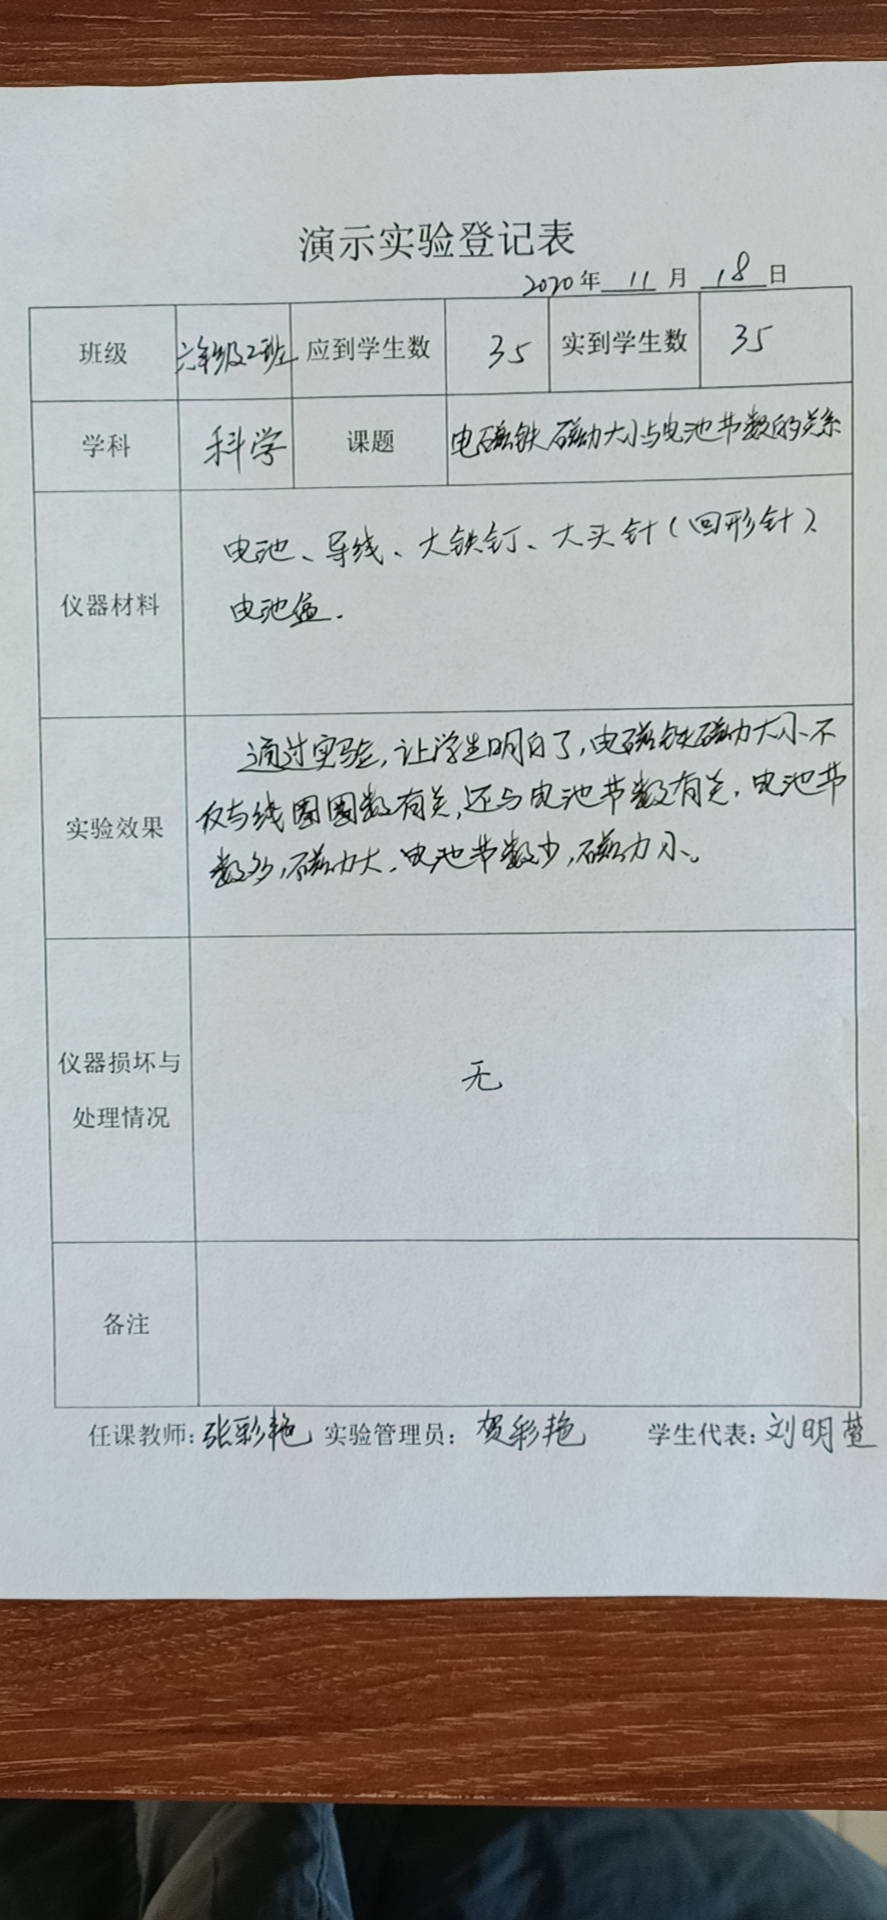 演示实验登记表
2020年 11 月 18 日
班级 六年级2班 应到学生数 35 实到学生数 35
学科 科学 课题 电磁铁磁力大小与电池节数的关系
仪器材料 电池、导线、大铁钉、大头针(回形针)、
电池盒.
通过实验,让学生明白了,电磁铁磁力大小不
仅与线圈圈数有关,还与电池节数有关.电池节
实验效果
数多,磁力大.电池节数少,磁力小。
仪器损坏与
处理情况
无
备注
任课教师:张彩艳 实验管理员:贺彩艳 学生代表:刘明